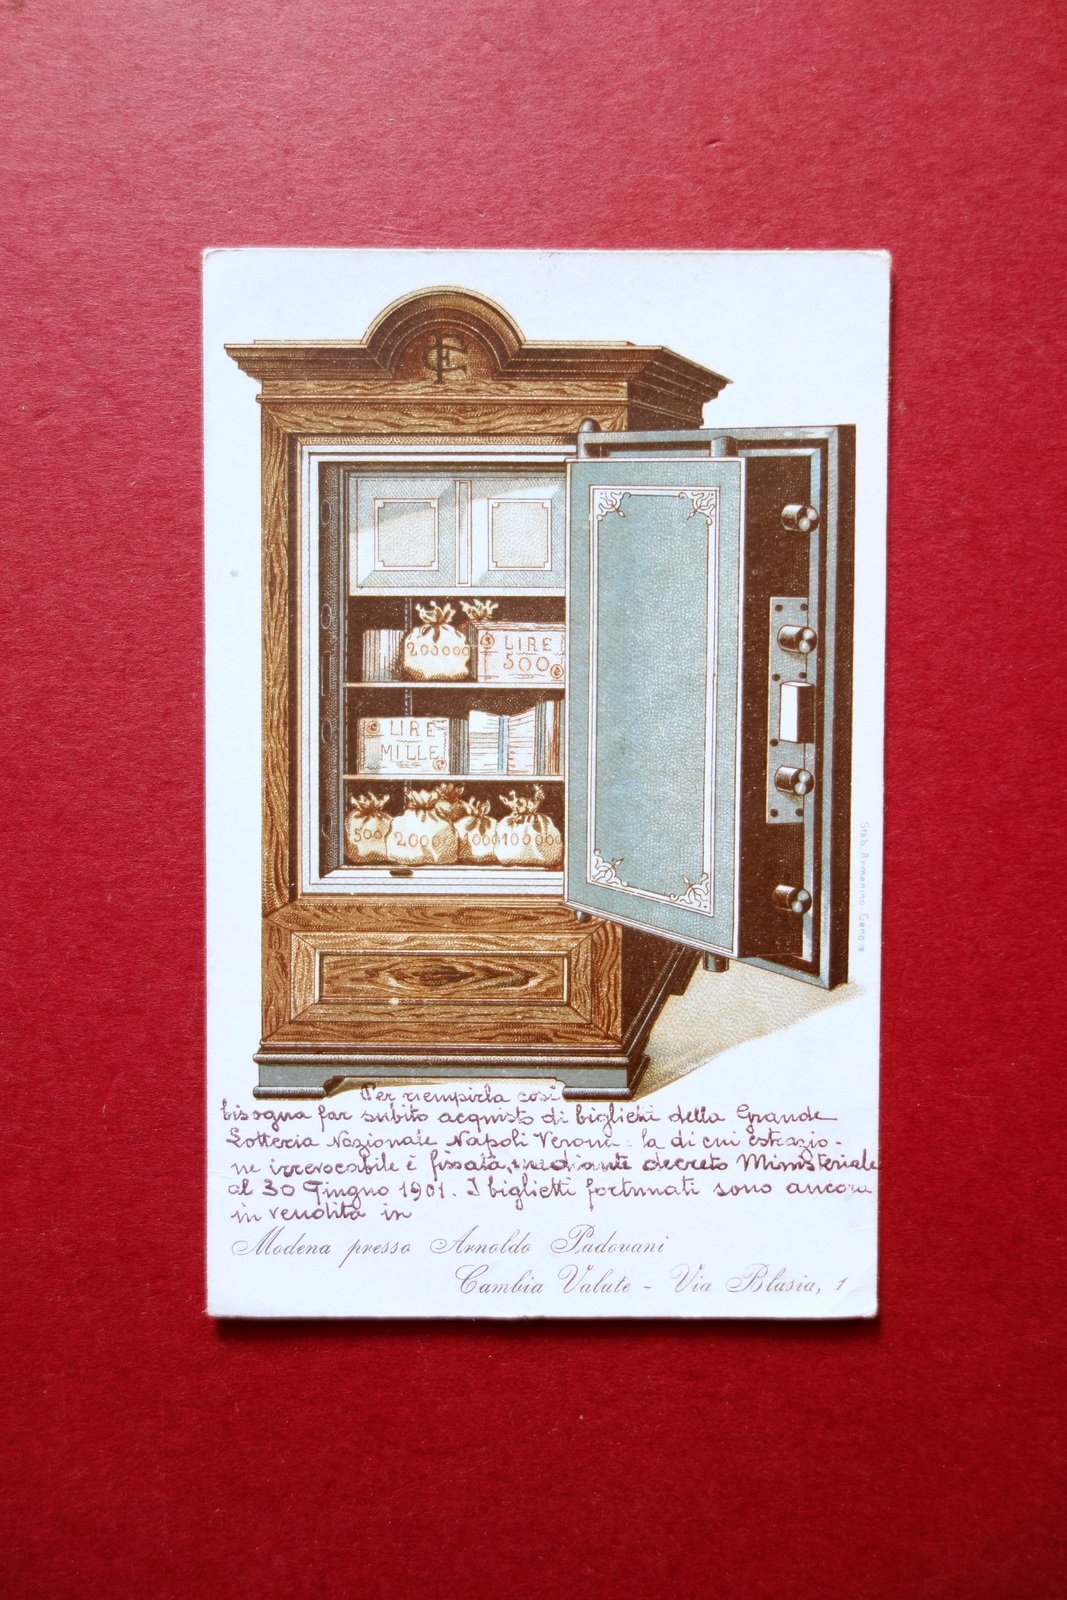 FC
200000
LIRE
500
LIRE
MILLE
500
2000
1000
100000
Stab. Armanino Genova
Per riempirla così
bisogna far subito acquisto di biglietti della Grande
Lotteria Nazionale Napoli Verona la di cui estrazio-
ne irrevocabile è fissata, mediante decreto Ministeriale
al 30 Giugno 1901. I biglietti fortunati sono ancora
in vendita in
Modena presso Arnoldo Padovani
Cambia Valute - Via Blasia, 1